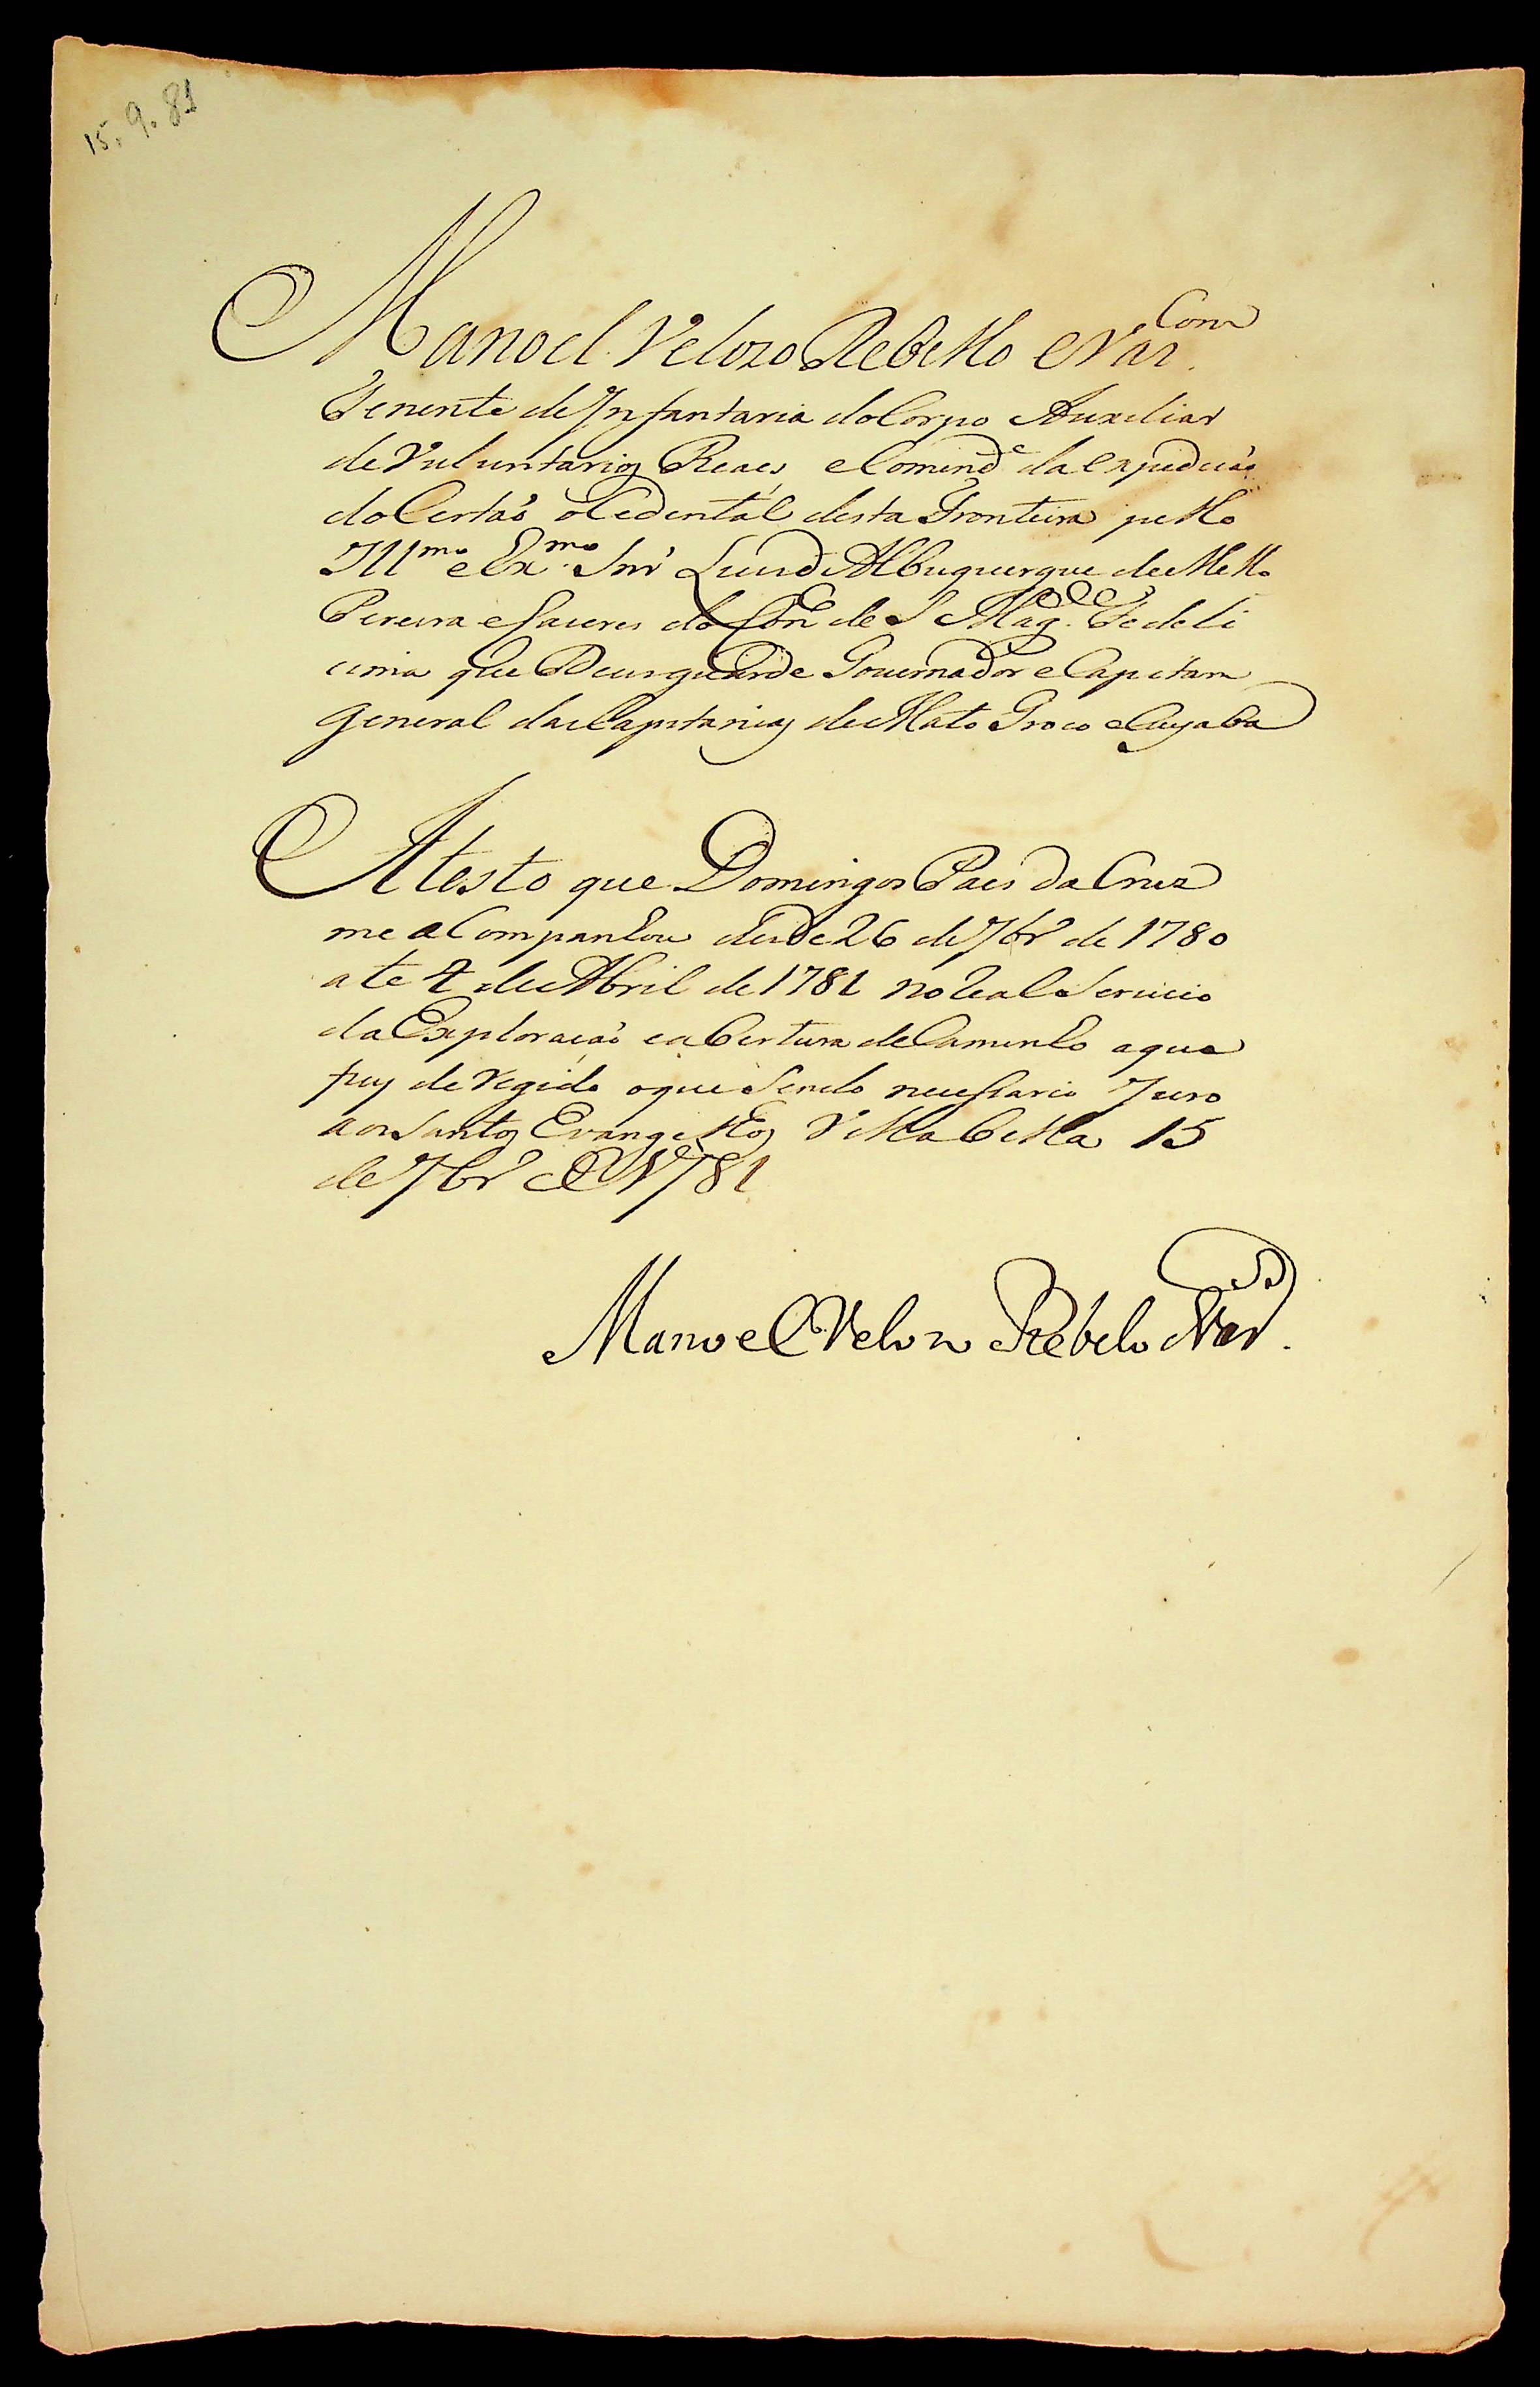 15. 9. 81
Manoel Velozo Rebello e Vas.con
Tenente de Infantaria do Corpo Auxeliar
de Vuluntarios Reaes, e Comend.e da expedicáo
do Certáo oCedental desta Fronteira pello
Ill.mo e Ex.mo Snr Luis d Albuquerque de Mello
Pereira e Caceres do Con de S Mag.de Fedeli
cima que Deus guarde Governador e Capitam
general das Capitanias de Mato Groco e Cuyaba
Atesto que Domingos Paes da Cruz
me aCompanhou desde 26 de 7br.o de 1780
ate 4 de Abril de 1781 no Real Servicio
da Exploracáo e abertura de Caminho a que
fuy deregido o que Sendo necessario Juro
aos Santos Evangelhos Villa Bella 15
de 7br.o de 1781
Manoel Velozo Rebelo Vas.